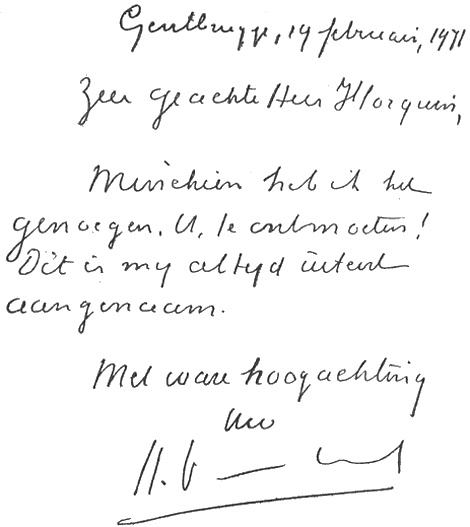 Gentbrugge, 19 februari, 1971
Zeer geachte Heer
Misschien heb ik het
genoegen, U, te ontmoeten!
Dit is my altyd uiterst
aangenaam.
Met ware hoogachting
Uw